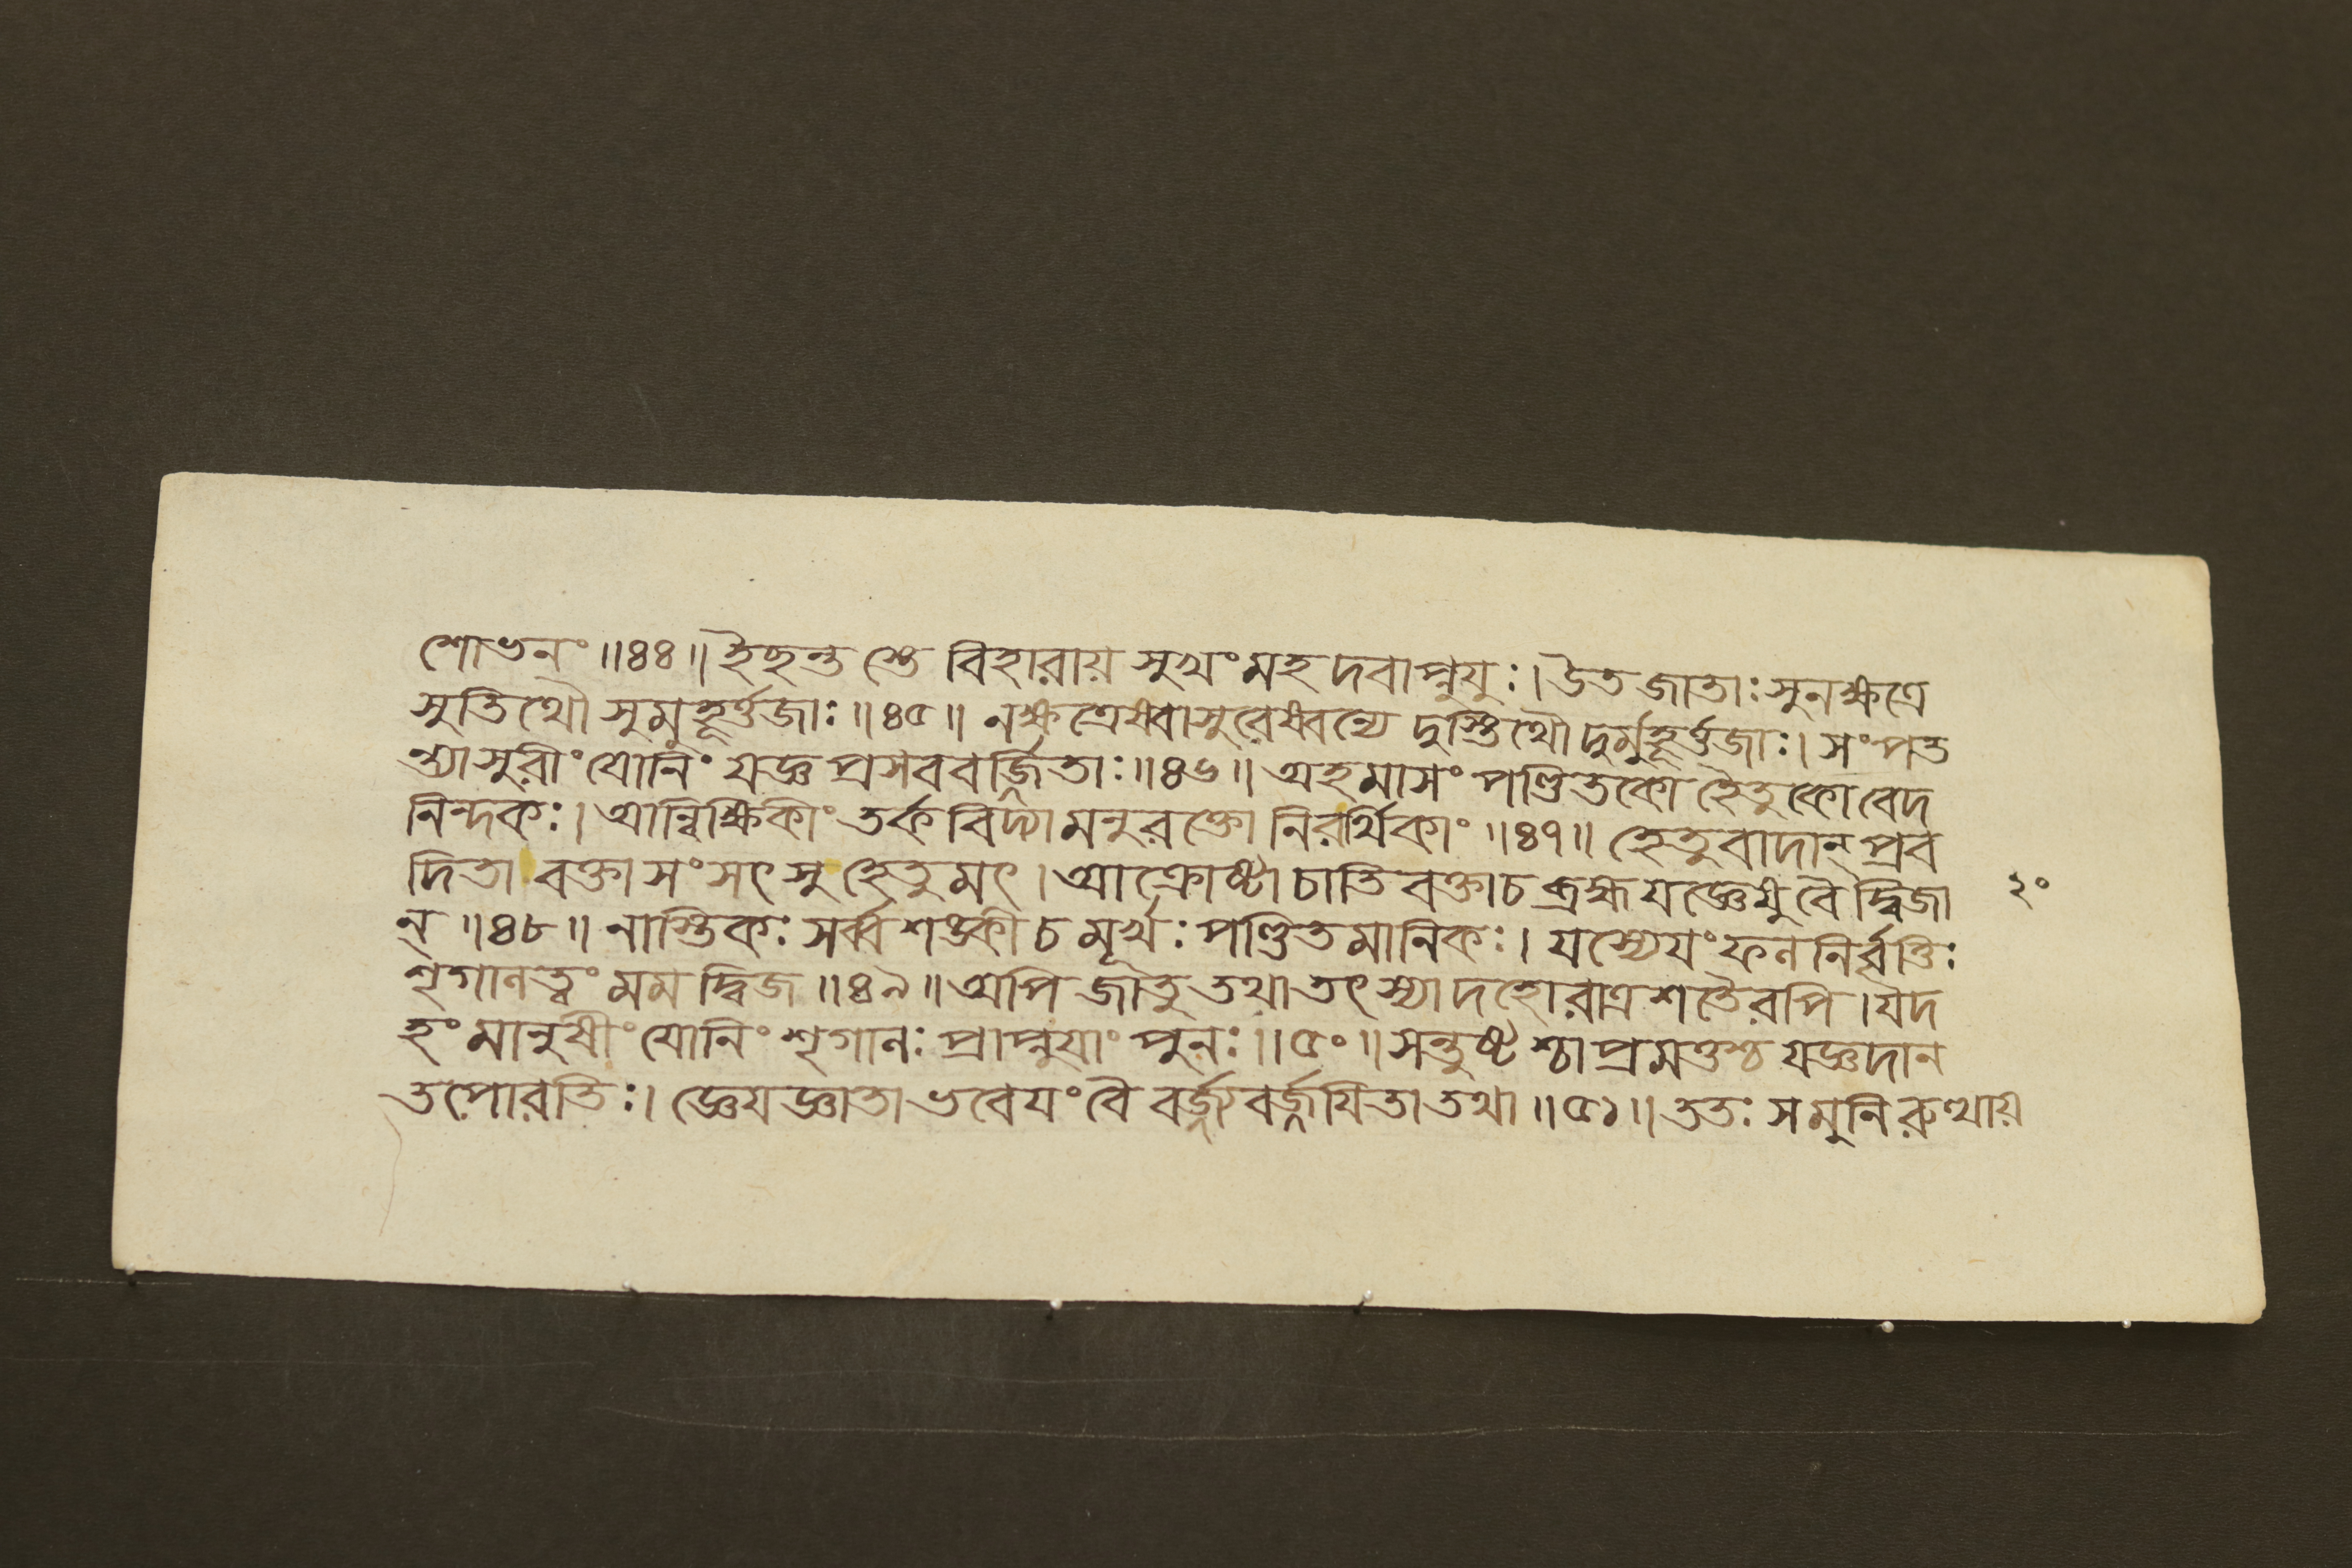 শোভনং ॥৪৪॥ ইছন্ত স্তে বিহারায় সুখং মহ দবাপ্নুযুঃ। উত জাতাঃ সুনক্ষত্রে
সুতিথৌ সুমুহূর্ত্তজাঃ ॥৪৫॥ নক্ষত্রেষ্বাসুরেষ্বন্যে দুস্তিথৌ দুর্মুহূর্ত্তজাঃ। সংপত
ন্ত্যাসুরীং যোনিং যজ্ঞ প্রসববর্জ্জিতাঃ ॥৪৬॥ অহমাসং পণ্ডিতকো হৈতুকো বেদ
নিন্দকঃ। আন্বিক্ষিকীং তর্ক বিদ্যামনুরক্তো নিরর্থিকাং ॥৪৭॥ হেতুবাদান্ প্রব
দিতা বক্তা সংসৎসু হেতুমৎ। আক্রোষ্টা চাতি বক্তা চ ব্রহ্ম যজ্ঞেষু বৈ দ্বিজা
ন্ ॥৪৮॥ নাস্তিকঃ সর্ব্বশঙ্কী চ মূর্খঃ পণ্ডিতমানিকঃ। যস্যেযং ফল নির্বৃত্তিঃ
শৃগালত্বং মম দ্বিজ ॥৪৯॥ অপি জাতু তথা তৎ স্যাদহোরাত্র শতৈরপি। যদ
হং মানুষীং যোনিং শৃগালঃ প্রাপ্নুযাং পুনঃ ॥৫০॥ সন্তুষ্টশ্চা প্রমত্তশ্চ যজ্ঞদান
তপোরতিঃ। জ্ঞেযজ্ঞাতা ভবেযং বৈ বর্জ্জ্যবর্জ্জযিতা তথা ॥৫১॥ ততঃ সমুনিরুত্থায়
২০